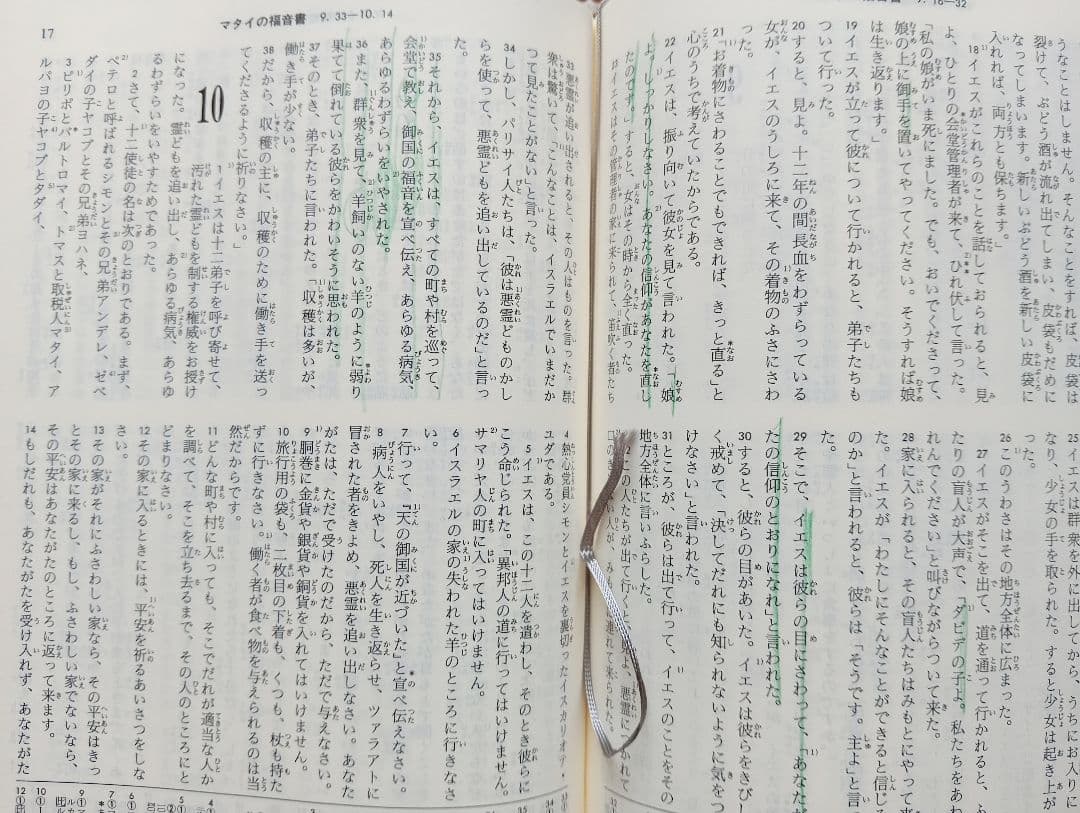 9. 16―32
うなことはしません。そんなことをすれば、皮袋は
裂けて、ぶどう酒が流れ出てしまい、皮袋もだめに
なってしまいます。新しいぶどう酒を新しい皮袋に
入れれば、両方とも保ちます。」
18イエスがこれらのことを話しておられると、見
よ、ひとりの会堂管理者が来て、ひれ伏して言った。
「私の娘がいま死にました。でも、おいでくださって、
娘の上に御手を置いてやってください。そうすれば娘
は生き返ります。」
19イエスが立って彼について行かれると、弟子たちも
ついて行った。
20すると、見よ。十二年の間長血をわずらっている
女が、イエスのうしろに来て、その着物のふさにさわ
った。
21「お着物にさわることでもできれば、きっと直る」と
心のうちで考えていたからである。
22イエスは、振り向いて彼女を見て言われた。「娘
よ。しっかりしなさい。あなたの信仰があなたを直し
たのです。」すると、女はその時から全く直った。
23イエスはその管理者の家に来られて、笛吹く者たち
なり、少女の手を取られた。すると少女は起き上が
った。
26このうわさはその地方全体に広まった。
27イエスがそこを出て、道を通って行かれると、ふ
たりの盲人が大声で、「ダビデの子よ。私たちをあわ
れんでください」と叫びながらついて来た。
28家に入られると、その盲人たちはみもとにやって来
た。イエスが「わたしにそんなことができると信じる
のか」と言われると、彼らは「そうです。主よ」と言っ
た。
29そこで、イエスは彼らの目にさわって、「あなたが
たの信仰のとおりになれ」と言われた。
30すると、彼らの目があいた。イエスは彼らをきびし
く戒めて、「決してだれにも知られないように気をつ
けなさい」と言われた。
31ところが、彼らは出て行って、イエスのことをその
地方全体に言いふらした。
この人たちが出て行くと、見よ、悪霊につかれて
マタイの福音書 9. 33―10. 14
17
33悪霊が追い出されると、その人はものを言った。群
衆は驚いて、「こんなことは、イスラエルでいまだか
つて見たことがない」と言った。
34しかし、パリサイ人たちは、「彼は悪霊どものかし
らを使って、悪霊どもを追い出しているのだ」と言っ
た。
35それから、イエスは、すべての町や村を巡って、
会堂で教え、御国の福音を宣べ伝え、あらゆる病気、
あらゆるわずらいをいやされた。
36また、群衆を見て、羊飼いのない羊のように弱り
果てて倒れている彼らをかわいそうに思われた。
37そのとき、弟子たちに言われた。「収穫は多いが、
働き手が少ない。
38だから、収穫の主に、収穫のために働き手を送っ
てくださるように祈りなさい。」
10
1イエスは十二弟子を呼び寄せて、
汚れた霊どもを制する権威をお授け
になった。霊どもを追い出し、あらゆる病気、あらゆ
るわずらいをいやすためであった。
2さて、十二使徒の名は次のとおりである。まず、
ペテロと呼ばれるシモンとその兄弟アンデレ、ゼベ
ダイの子ヤコブとその兄弟ヨハネ、
3ピリポとバルトロマイ、トマスと取税人マタイ、ア
ルパヨの子ヤコブとタダイ、
4熱心党員シモンとイエスを裏切ったイスカリオテ・
ユダである。
5イエスは、この十二人を遣わし、そのとき彼らに
こう命じられた。「異邦人の道に行ってはいけません。
サマリヤ人の町に入ってはいけません。
6イスラエルの家の失われた羊のところに行きなさ
い。
7行って、『天の御国が近づいた』と宣べ伝えなさい。
8病人をいやし、死人を生き返らせ、ツァラアトに
冒された者をきよめ、悪霊を追い出しなさい。あなた
がたは、ただで受けたのだから、ただで与えなさい。
9胴巻に金貨や銀貨や銅貨を入れてはいけません。
10旅行用の袋も、二枚目の下着も、くつも、杖も持た
ずに行きなさい。働く者が食べ物を与えられるのは当
然だからです。
11どんな町や村に入っても、そこでだれが適当な人か
を調べて、そこを立ち去るまで、その人のところにと
どまりなさい。
12その家に入るときには、平安を祈るあいさつをしな
さい。
13その家がそれにふさわしい家なら、その平安はきっ
とその家に来るし、もし、ふさわしい家でないなら、
その平安はあなたがたのところに返って来ます。
14もしだれも、あなたがたを受け入れず、あなたがた